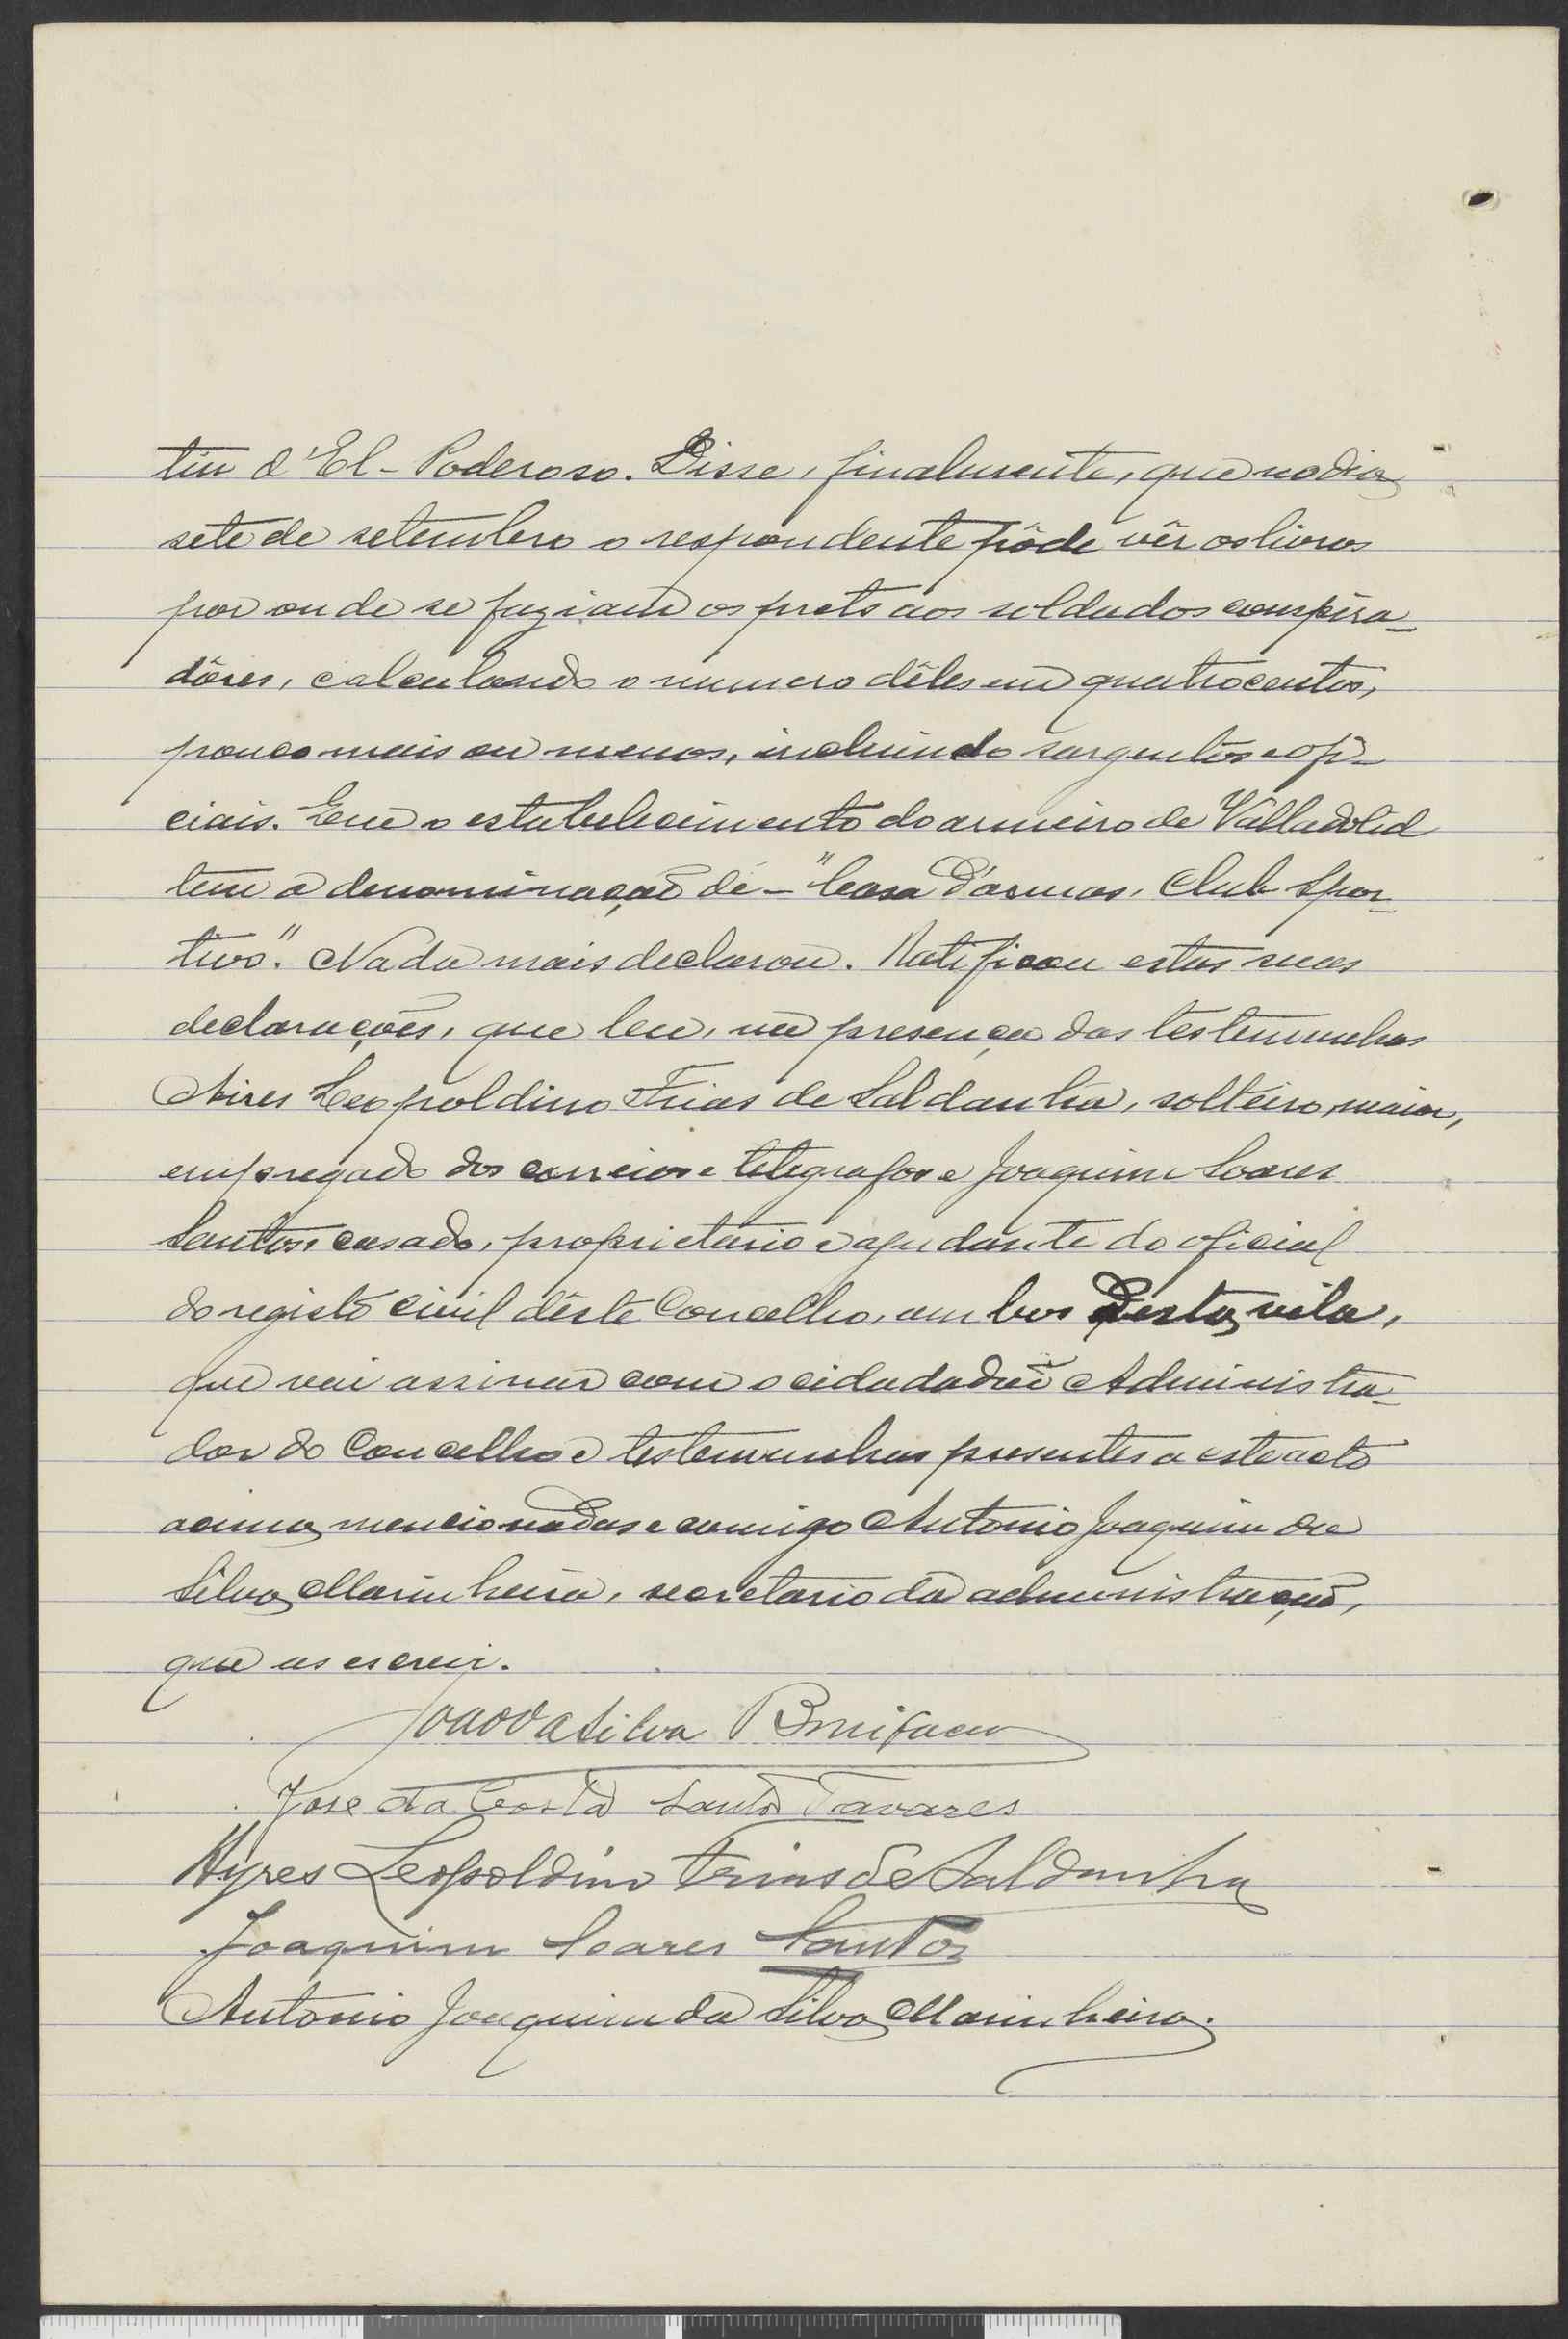 tin d'El-Poderoso. Disse, finalmente, que no dia
sete de setembro o respondente pôde vêr os livros
por onde se faziam os prets aos soldados conspira-
dôres, calculando o numero dêles em quatrocentos,
pouco mais ou menos, incluindo sargentos e ofi-
ciais. Que o estabelecimento do armeiro de Valladolid
tem a denominação de - "Casa d'armas, Club Spor-
tivo". Nada mais declarou. Ratificou estas suas
declarações, que leu, na presença das testemunhas
Aires Leopoldino Frias de Saldanha, solteiro, maior,
empregado dos correios e telegrafos e Joaquim Soares
Santos, casado, proprietario e ajudante do oficial
do registo civil dêste Concelho, ambos desta vila,
que vai assinar com o cidadão Administra-
dor do Concelho e testemunhas presentes a este acto
acima mencionadas e comigo Antonio Joaquim da
Silva Marinheira, secretario da administração,
que as escrevi.
João da Silva Bonifacio
José da Costa Santos Tavares
Ayres Leopoldino Frias de Saldanha
Joaquim Soares Santos
Antonio Joaquim da Silva Marinheira.